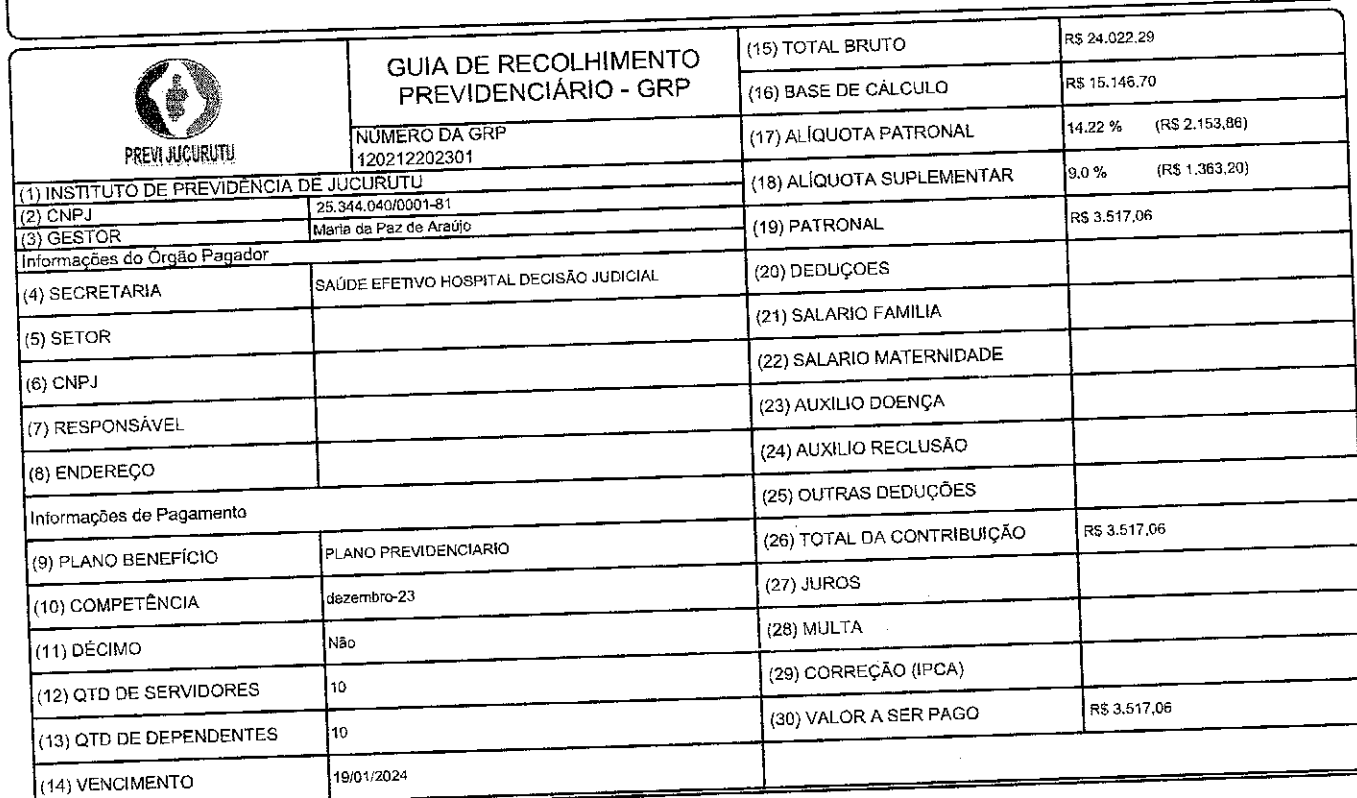 PREVI JUCURUTU
GUIA DE RECOLHIMENTO
PREVIDENCIÁRIO - GRP
NÚMERO DA GRP
120212202301
(1) INSTITUTO DE PREVIDÊNCIA DE JUCURUTU
(2) CNPJ 25.344.040/0001-81
(3) GESTOR Maria da Paz de Araújo
Informações do Órgão Pagador
(4) SECRETARIA SAÚDE EFETIVO HOSPITAL DECISÃO JUDICIAL
(5) SETOR
(6) CNPJ
(7) RESPONSÁVEL
(8) ENDEREÇO
Informações de Pagamento
(9) PLANO BENEFÍCIO PLANO PREVIDENCIARIO
(10) COMPETÊNCIA dezembro-23
(11) DÉCIMO Não
(12) QTD DE SERVIDORES 10
(13) QTD DE DEPENDENTES 10
(14) VENCIMENTO 19/01/2024
(15) TOTAL BRUTO R$ 24.022,29
(16) BASE DE CÁLCULO R$ 15.146,70
(17) ALÍQUOTA PATRONAL 14.22 % (R$ 2.153,86)
(18) ALÍQUOTA SUPLEMENTAR 9.0 % (R$ 1.363,20)
(19) PATRONAL R$ 3.517,06
(20) DEDUÇOES
(21) SALARIO FAMILIA
(22) SALARIO MATERNIDADE
(23) AUXILIO DOENÇA
(24) AUXILIO RECLUSÃO
(25) OUTRAS DEDUÇÕES
(26) TOTAL DA CONTRIBUIÇÃO R$ 3.517,06
(27) JUROS
(28) MULTA
(29) CORREÇÃO (IPCA)
(30) VALOR A SER PAGO R$ 3.517,06